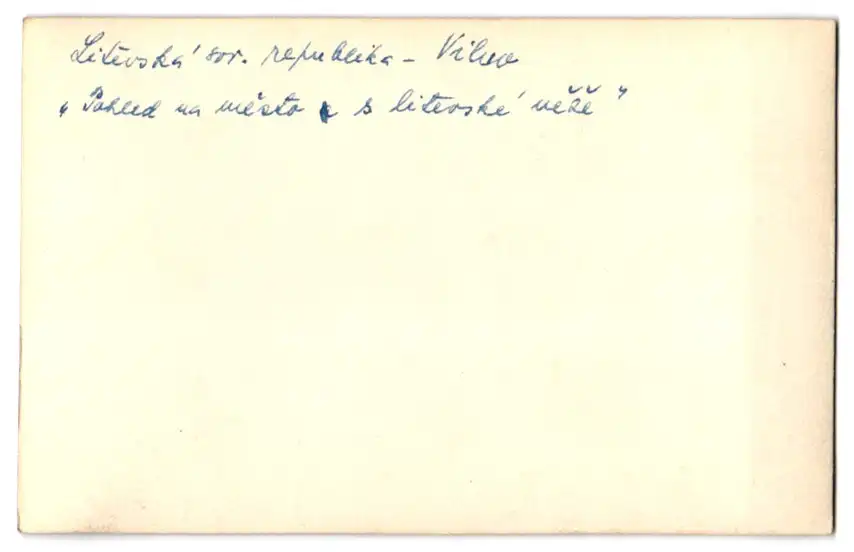 Litevská sov. republika - Vilno
„Pohled na město s litevské věže"